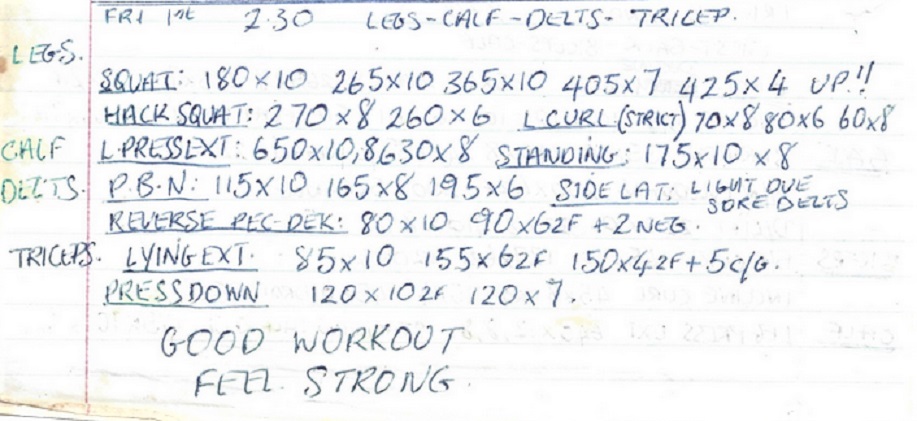 FRI 1st 2.30 LEGS-CALF-DELTS-TRICEP.
LEGS.
SQUAT: 180x10 265x10 365x10 405x7 425x4 UP!!
HACK SQUAT: 270x8 260x6 L CURL (STRICT) 70x8 80x6 60x8
CALF L.PRESS EXT: 650x10,8 630x8 STANDING: 175x10 x8
DELTS. P.B.N: 115x10 165x8 195x6 SIDE LAT: LIGHT DUE
SORE DELTS
REVERSE PEC-DEK: 80x10 90x6 2F +2 NEG.
TRICEPS. LYING EXT. 85x10 155x6 2F 150x4 2F + 5 c/G.
PRESSDOWN 120x10 2F 120x7.
GOOD WORKOUT
FEEL STRONG.